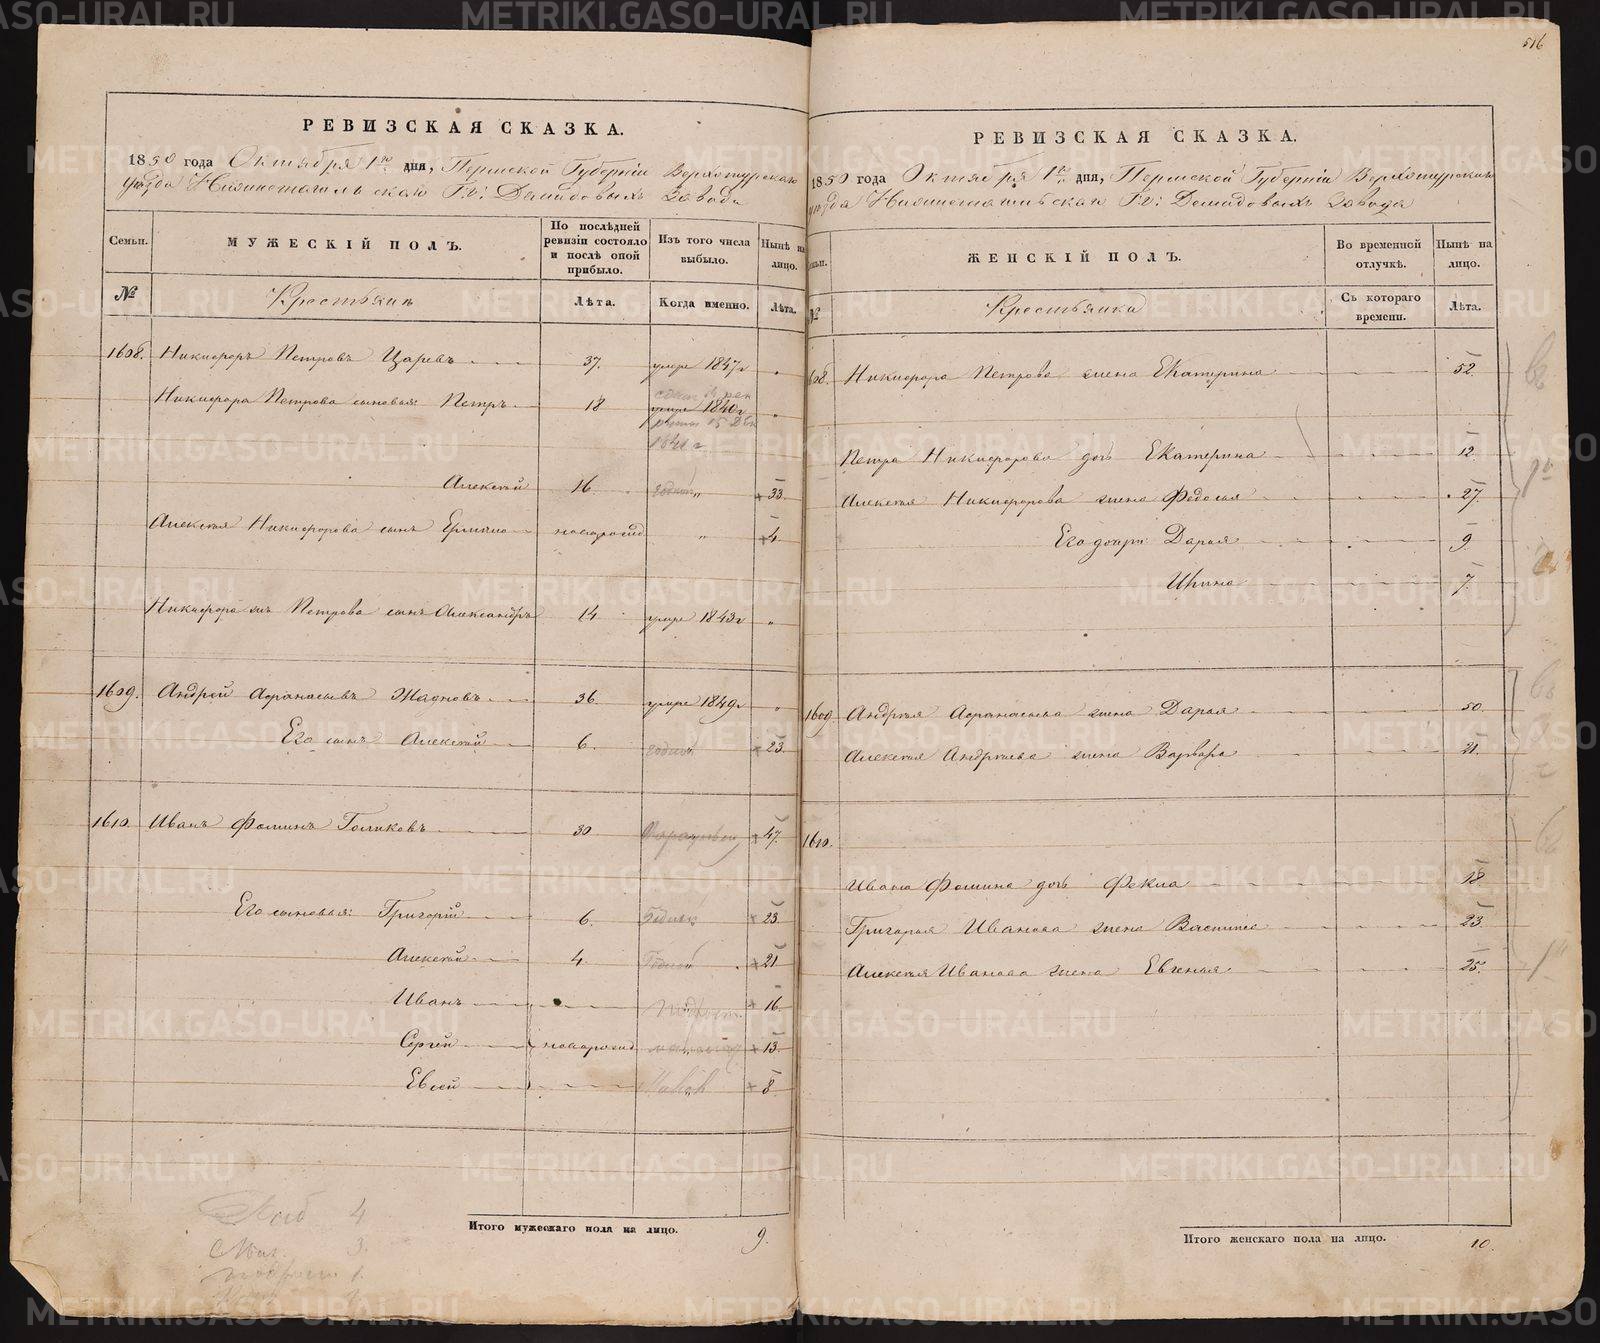 РЕВИЗСКАЯ СКАЗКА.
1850 года Октября 1го дня, Пермской Губерніи Верхотурскаго
уѣзда Нижнетагильскаго Г.г: Демидовыхъ Завода
Семьи. МУЖЕСКІЙ ПОЛЪ. По послѣдней ревизіи состояло и послѣ оной прибыло. Изъ того числа выбыло. Нынѣ на лицо.
№ Крестьянъ Лѣта. Когда именно. Лѣта.
1608. Никифоръ Петровъ Царевъ 37. умре 1847г "
Никифора Петрова сыновья: Петръ 18 умре 1840г "
1841 г
Алексѣй 16. " 33.
Алексѣя Никифорова сынъ новорожд " 4
Никифора Петрова сынъ Александръ 14 умре 1843г "
1609. Андрей Афанасьевъ 36. умре 1849г "
Его сынъ Алексѣй 6. годный 23.
1610. Иванъ Фоминъ Голиковъ 30 47.
Его сыновья: Григорій 6. 23
Алексѣй 4. Годной 21
Иванъ 16
Сергей новорожд 13.
Евсей 8
4
3.
1.
Итого мужескаго пола на лицо. 9.
516
РЕВИЗСКАЯ СКАЗКА.
1850 года Октября 1го дня, Пермской Губерніи Верхотурскаго
уѣзда Нижнетагильскаго Г.г: Демидовыхъ Завода
Семьи. ЖЕНСКІЙ ПОЛЪ. Во временной отлучкѣ. Нынѣ на лицо.
№ Крестьянки Съ котораго времени. Лѣта.
1608. Никифора Петрова жена Екатерина 52.
Петра Никифорова дочь Екатерина 12.
Алексѣя Никифорова жена Федосья 27.
Его дочери: Дарья 9
Ирина 7.
1609 Андрѣя Афанасьева жена Дарья 50.
Алексѣя Андрѣева жена Варвара 21.
1610.
Ивана Фомина дочь Фекла 18
Григорья Иванова жена 23.
Алексѣя Иванова жена Евгенья 25.
Итого женскаго пола на лицо. 10.
METRIKI.GASO-URAL.RU